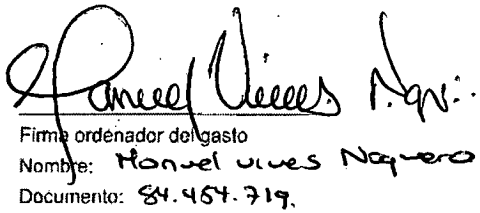 Manuel Vives N
Firma ordenador del gasto
Nombre: Manuel vives Noguera
Documento: 84.454.719.